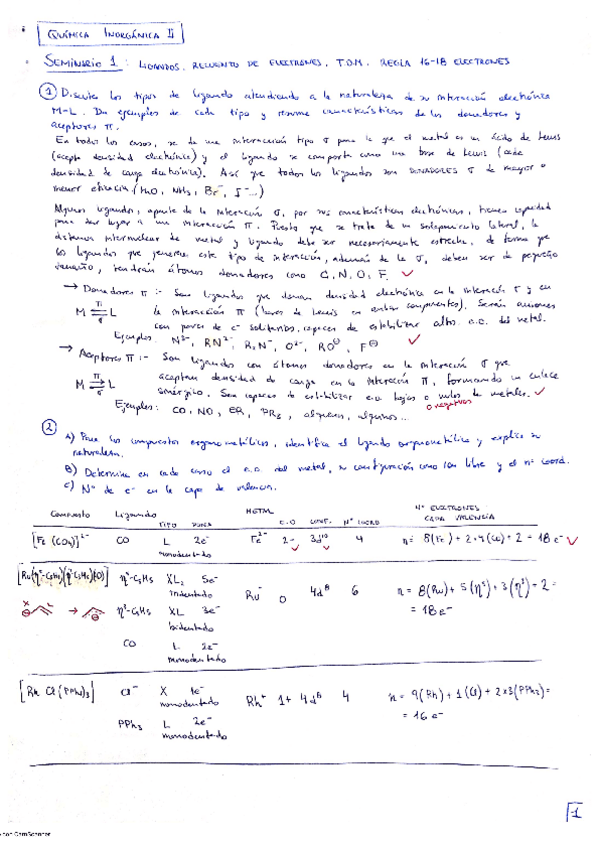 QUÍMICA INORGÁNICA II
SEMINARIO 1: LIGANDOS. RECUENTO DE ELECTRONES. T.O.M. REGLA 16-18 ELECTRONES
① Discute los tipos de ligando atendiendo a la naturaleza de su interacción electrónica
M-L. Da ejemplos de cada tipo y resume características de los donadores y
aceptores π.
En todos los casos, se da una interacción tipo σ para la que el metal es un ácido de Lewis
(acepta densidad electrónica) y el ligando se comporta como una base de Lewis (cede
densidad de carga electrónica). Así que todos los ligandos son DONADORES σ de mayor o
menor eficacia (H2O, NH3, Br-, I-...)
Algunos ligandos, aparte de la interacción σ, por sus características electrónicas, tienen capacidad
para dar lugar a una interacción π. Puesto que se trata de un solapamiento lateral, la
distancia internuclear de metal y ligando debe ser necesariamente estrecha, de forma que
los ligandos que generen este tipo de interacción, además de la σ, deben ser de pequeño
tamaño, tendrán átomos donadores como C, N, O, F. ✓
→ Donadores π :- Son ligandos que donan densidad electrónica en la interacción σ y en
M ⇇ L la interacción π (bases de Lewis en ambas componentes). Serán aniones
π σ con pares de e- solitarios, capaces de estabilizar altos e.o. del metal.
Ejemplos: N3-, RN2-, R2N-, O2-, RO⊖, F⊖ ✓
→ Aceptores π :- Son ligandos con átomos donadores en la interacción σ que
M ⇄ L aceptan densidad de carga en la interacción π, formando un enlace
π σ sinérgico. Son capaces de estabilizar e.o. bajos o nulos de metales. ✓
o negativos
Ejemplos: CO, NO, PR3, alquenos, alquinos...
② A) Para los compuestos organometálicos, identifica el ligando organometálico y explica su
naturaleza.
B) Determina en cada caso el e.o. del metal, su configuración como ion libre y el nº coord.
C) Nº de e- en la capa de valencia.
Compuesto Ligando TIPO METAL E.O CONF. Nº COORD Nº ELECTRONES CAPA VALENCIA
[Fe(CO)4]2- CO L 2e- Fe2- 2- 3d10 4 n = 8(Fe) + 2·4(CO) + 2 = 18e- ✓
monodentado
[Ru(η5-C5H5)(η3-C3H5)(CO)] η5-C5H5 XL2 5e- Ru 0 4d8 6 n = 8(Ru) + 5(η5) + 3(η3) + 2 =
= 18e-
η3-C3H5 XL 3e-
bidentado
CO L 2e-
monodentado
[RhCl(PPh3)3] Cl- X 1e- Rh+ 1+ 4d8 4 n = 9(Rh) + 1(Cl) + 2×3(PPh3) =
monodentado = 16e-
PPh3 L 2e-
monodentado
1
CamScanner